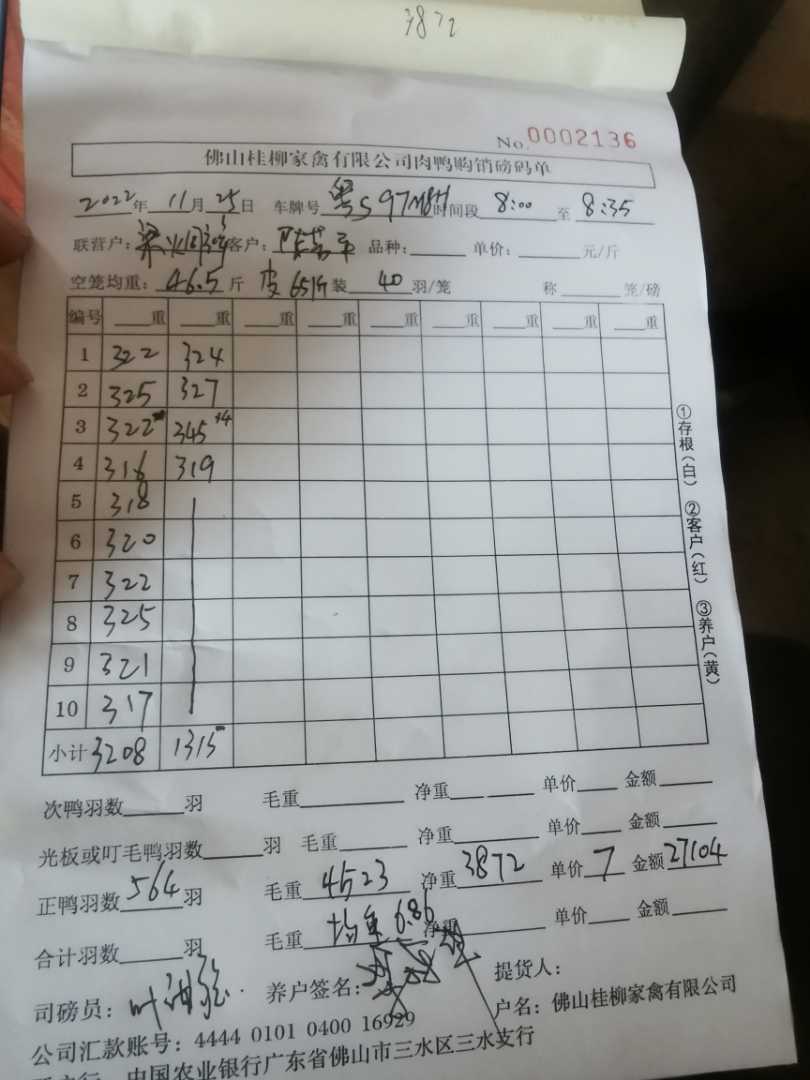 3872
No. 0002136
佛山桂柳家禽有限公司肉鸭购销磅码单
2022年 11月25日 车牌号 粤S97M8H 时间段 8:00 至 8:35
联营户: 客户: 品种: 单价: 元/斤
空笼均重: 46.5 斤 皮651斤 装 40 羽/笼 称 笼/磅
编号 重 重 重 重 重 重 重 重
1 322 324
2 325 327
3 322 345 +4
4 316 319
5 318
6 320
7 322
8 325
9 321
10 317
小计 3208 1315
①存根(白) ②客户(红) ③养户(黄)
次鸭羽数 羽 毛重 净重 单价 金额
光板或叮毛鸭羽数 羽 毛重 净重 单价 金额
正鸭羽数 564 羽 毛重 4523 净重 3872 单价 7 金额 27104
合计羽数 羽 毛重 均重 6.86 净重 单价 金额
司磅员: 叶 养户签名: 提货人:
公司汇款账号: 4444 0101 0400 16929 户名: 佛山桂柳家禽有限公司
中国农业银行广东省佛山市三水区三水支行